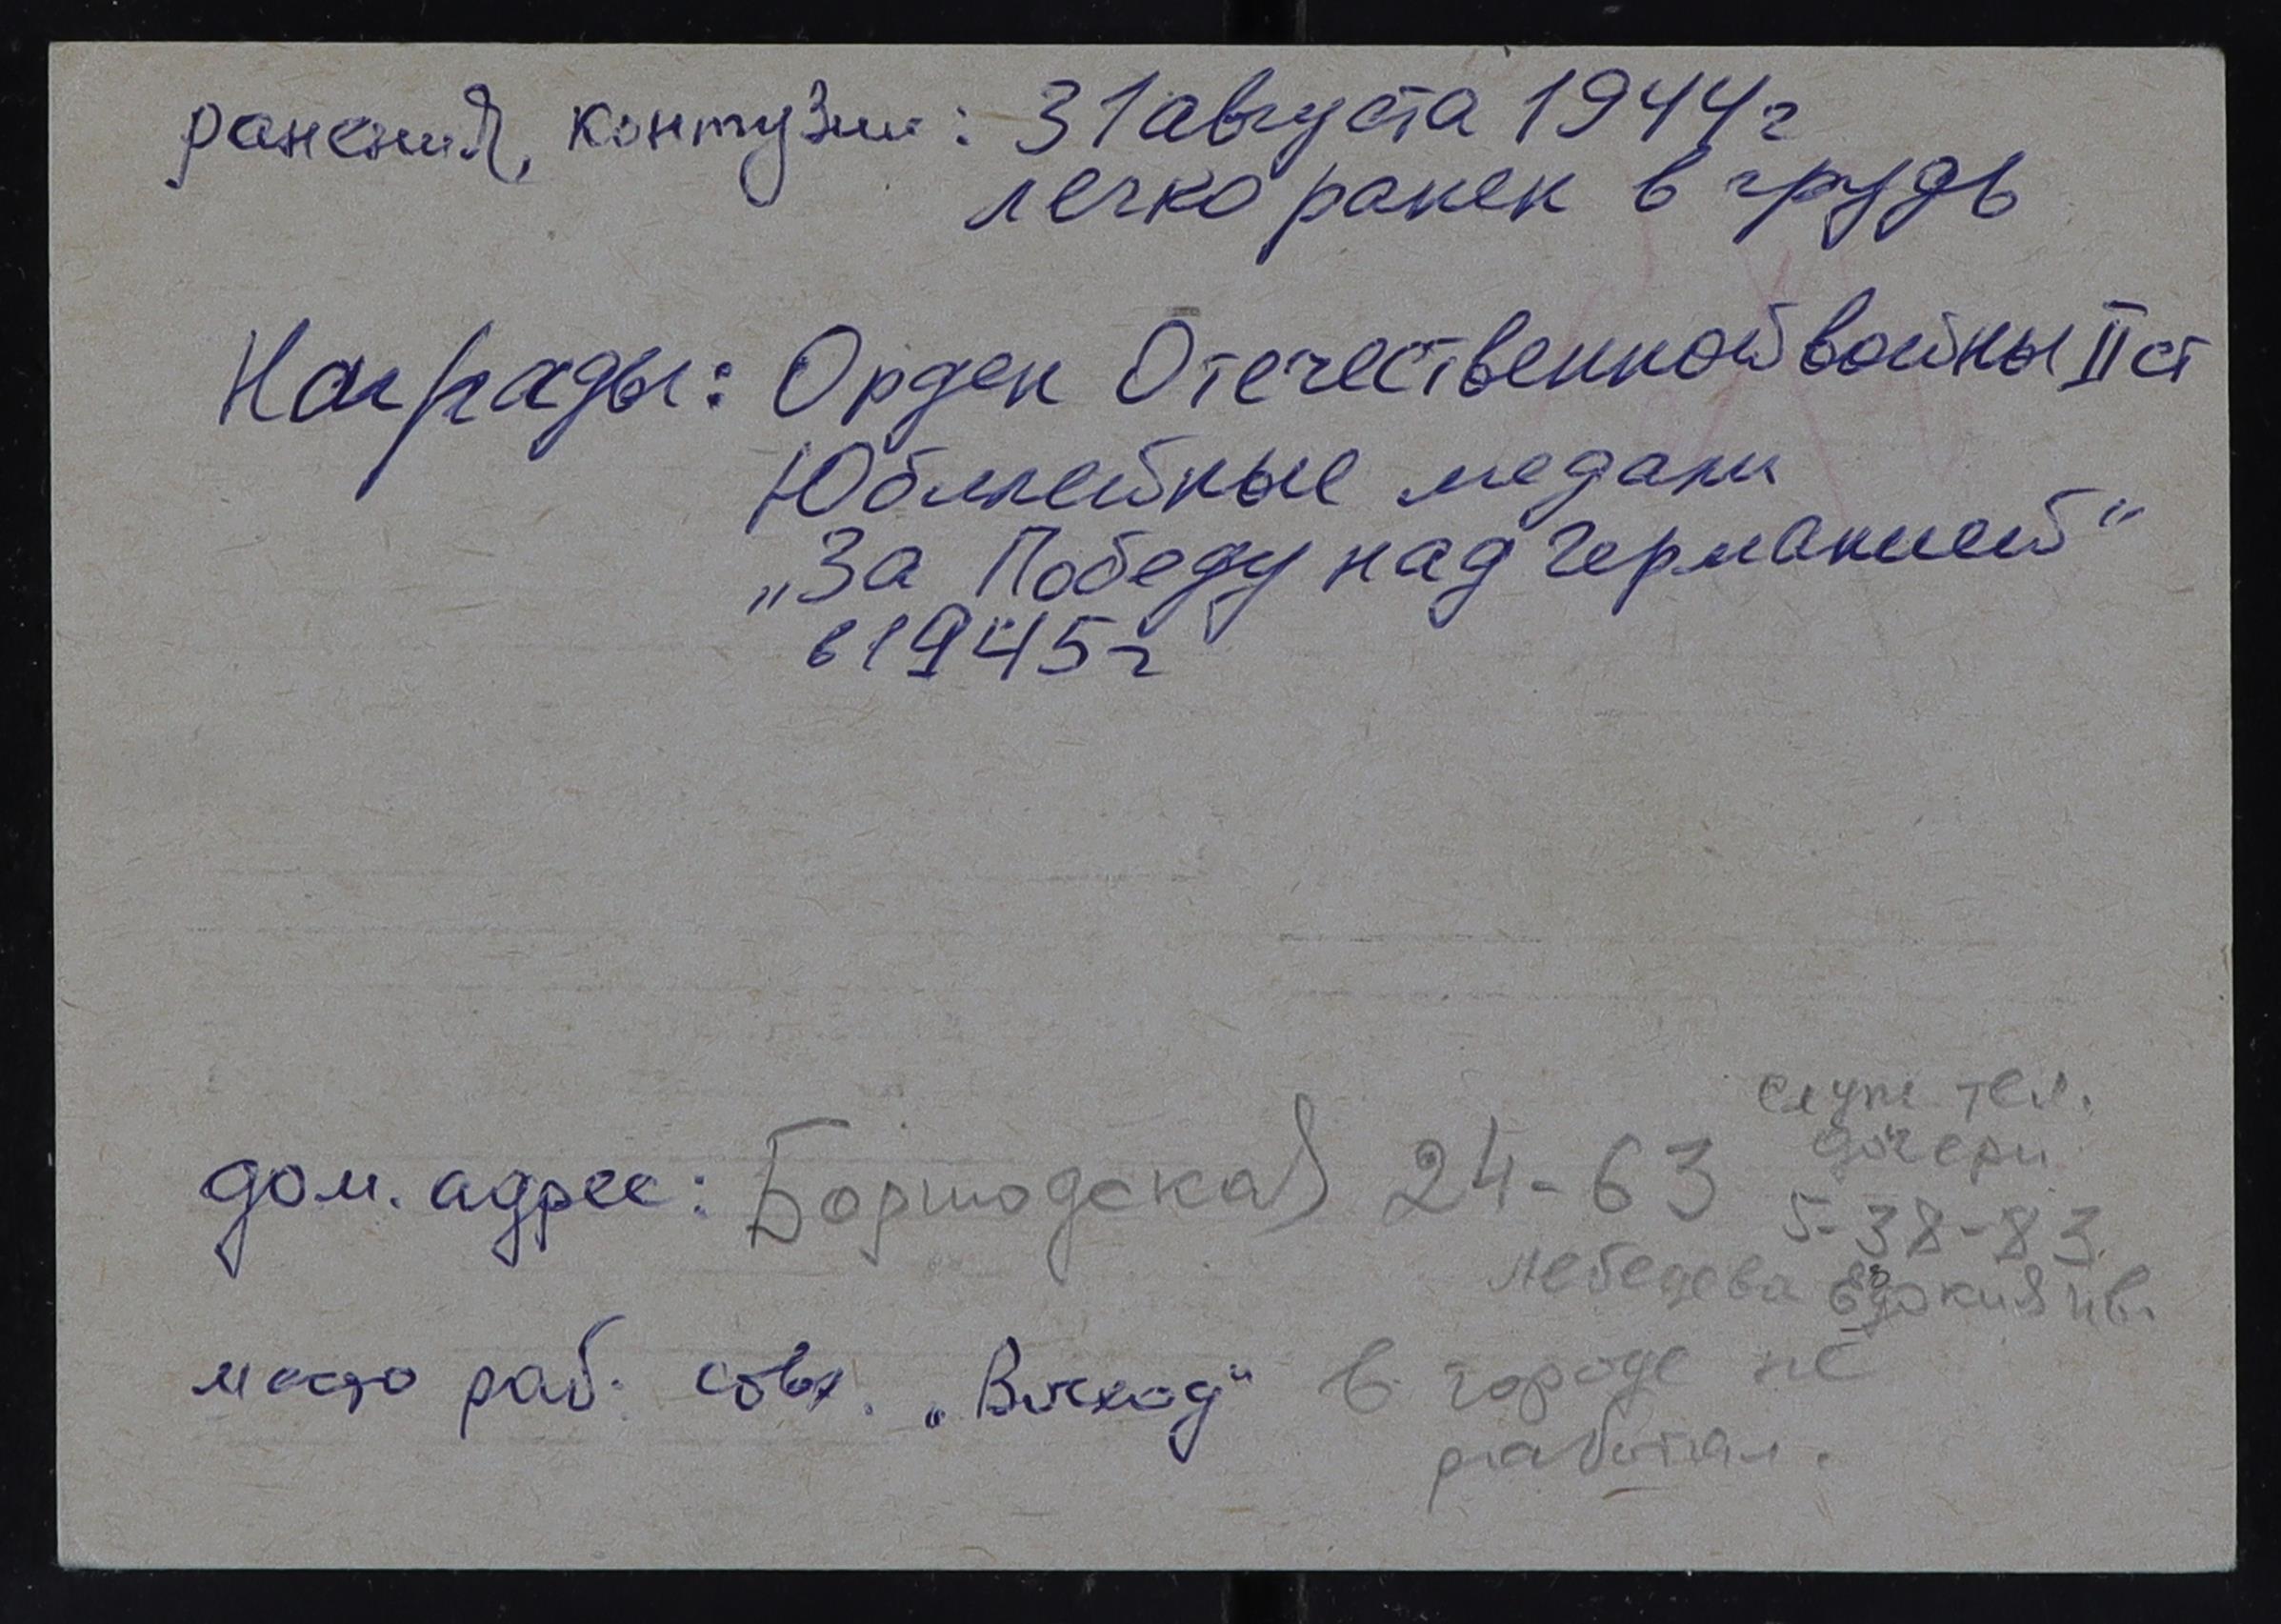 ранения, контузии: 31 августа 1944 г
легко ранен в грудь
Награды: Орден Отечественной войны II ст
Юбилейные медали
„За Победу над Германией“
в 1945 г
служ. тел.
дочери
дом. адрес: Боршодская 24-63
5-38-83
Лебедева Евдокия Ив.
место раб. совх. „Восход“ в городе не
работал.